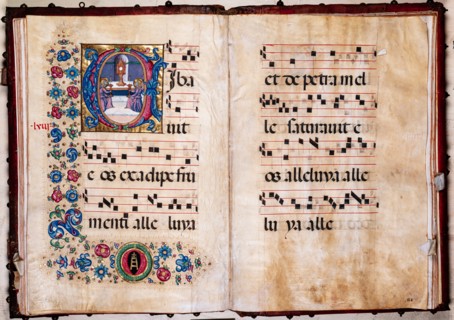 CIba
uit
e os ex adipe fru
menti alle luya
et de petra mel
le saturauit e
os alleluya alle
lu ya alle